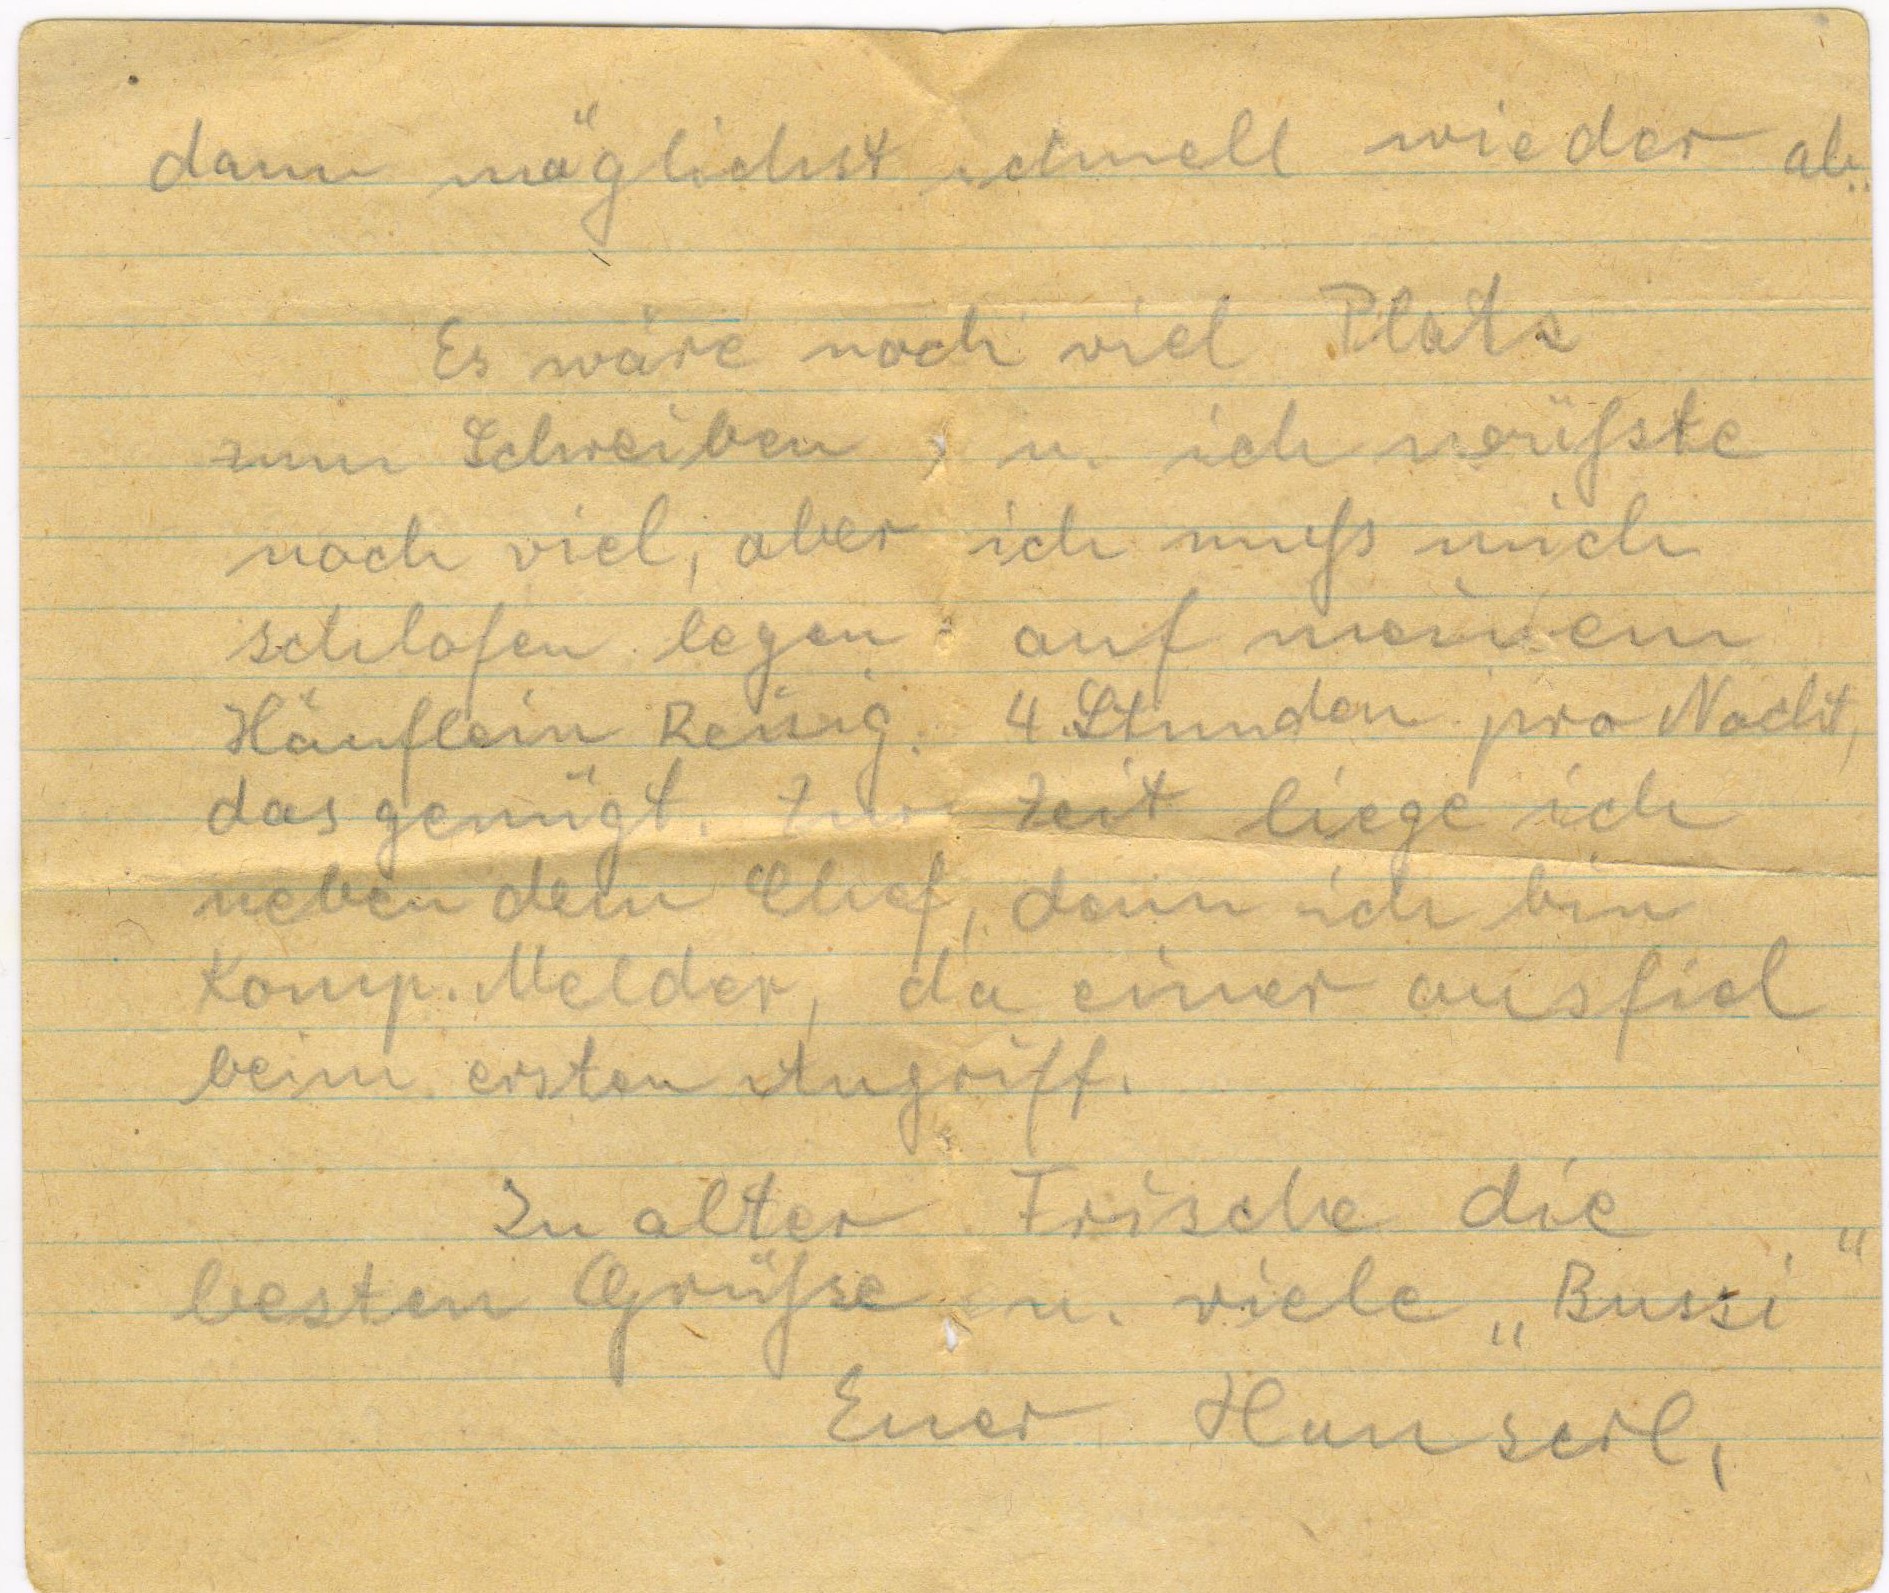 dann möglichst schnell wieder ab..
Es wäre noch viel Platz
zum Schreiben, u. ich wüßste
noch viel, aber ich muß mich
schlafen legen auf meinem
Häuflein Reisig. 4 Stunden pro Nacht,
das genügt. Zur Zeit liege ich
neben dem Chef, denn ich bin
Komp. Melder, da einer ausfiel
beim ersten Angriff.
In alter Frische die
besten Grüßse u. viele „Bussi"
Euer Hanserl,